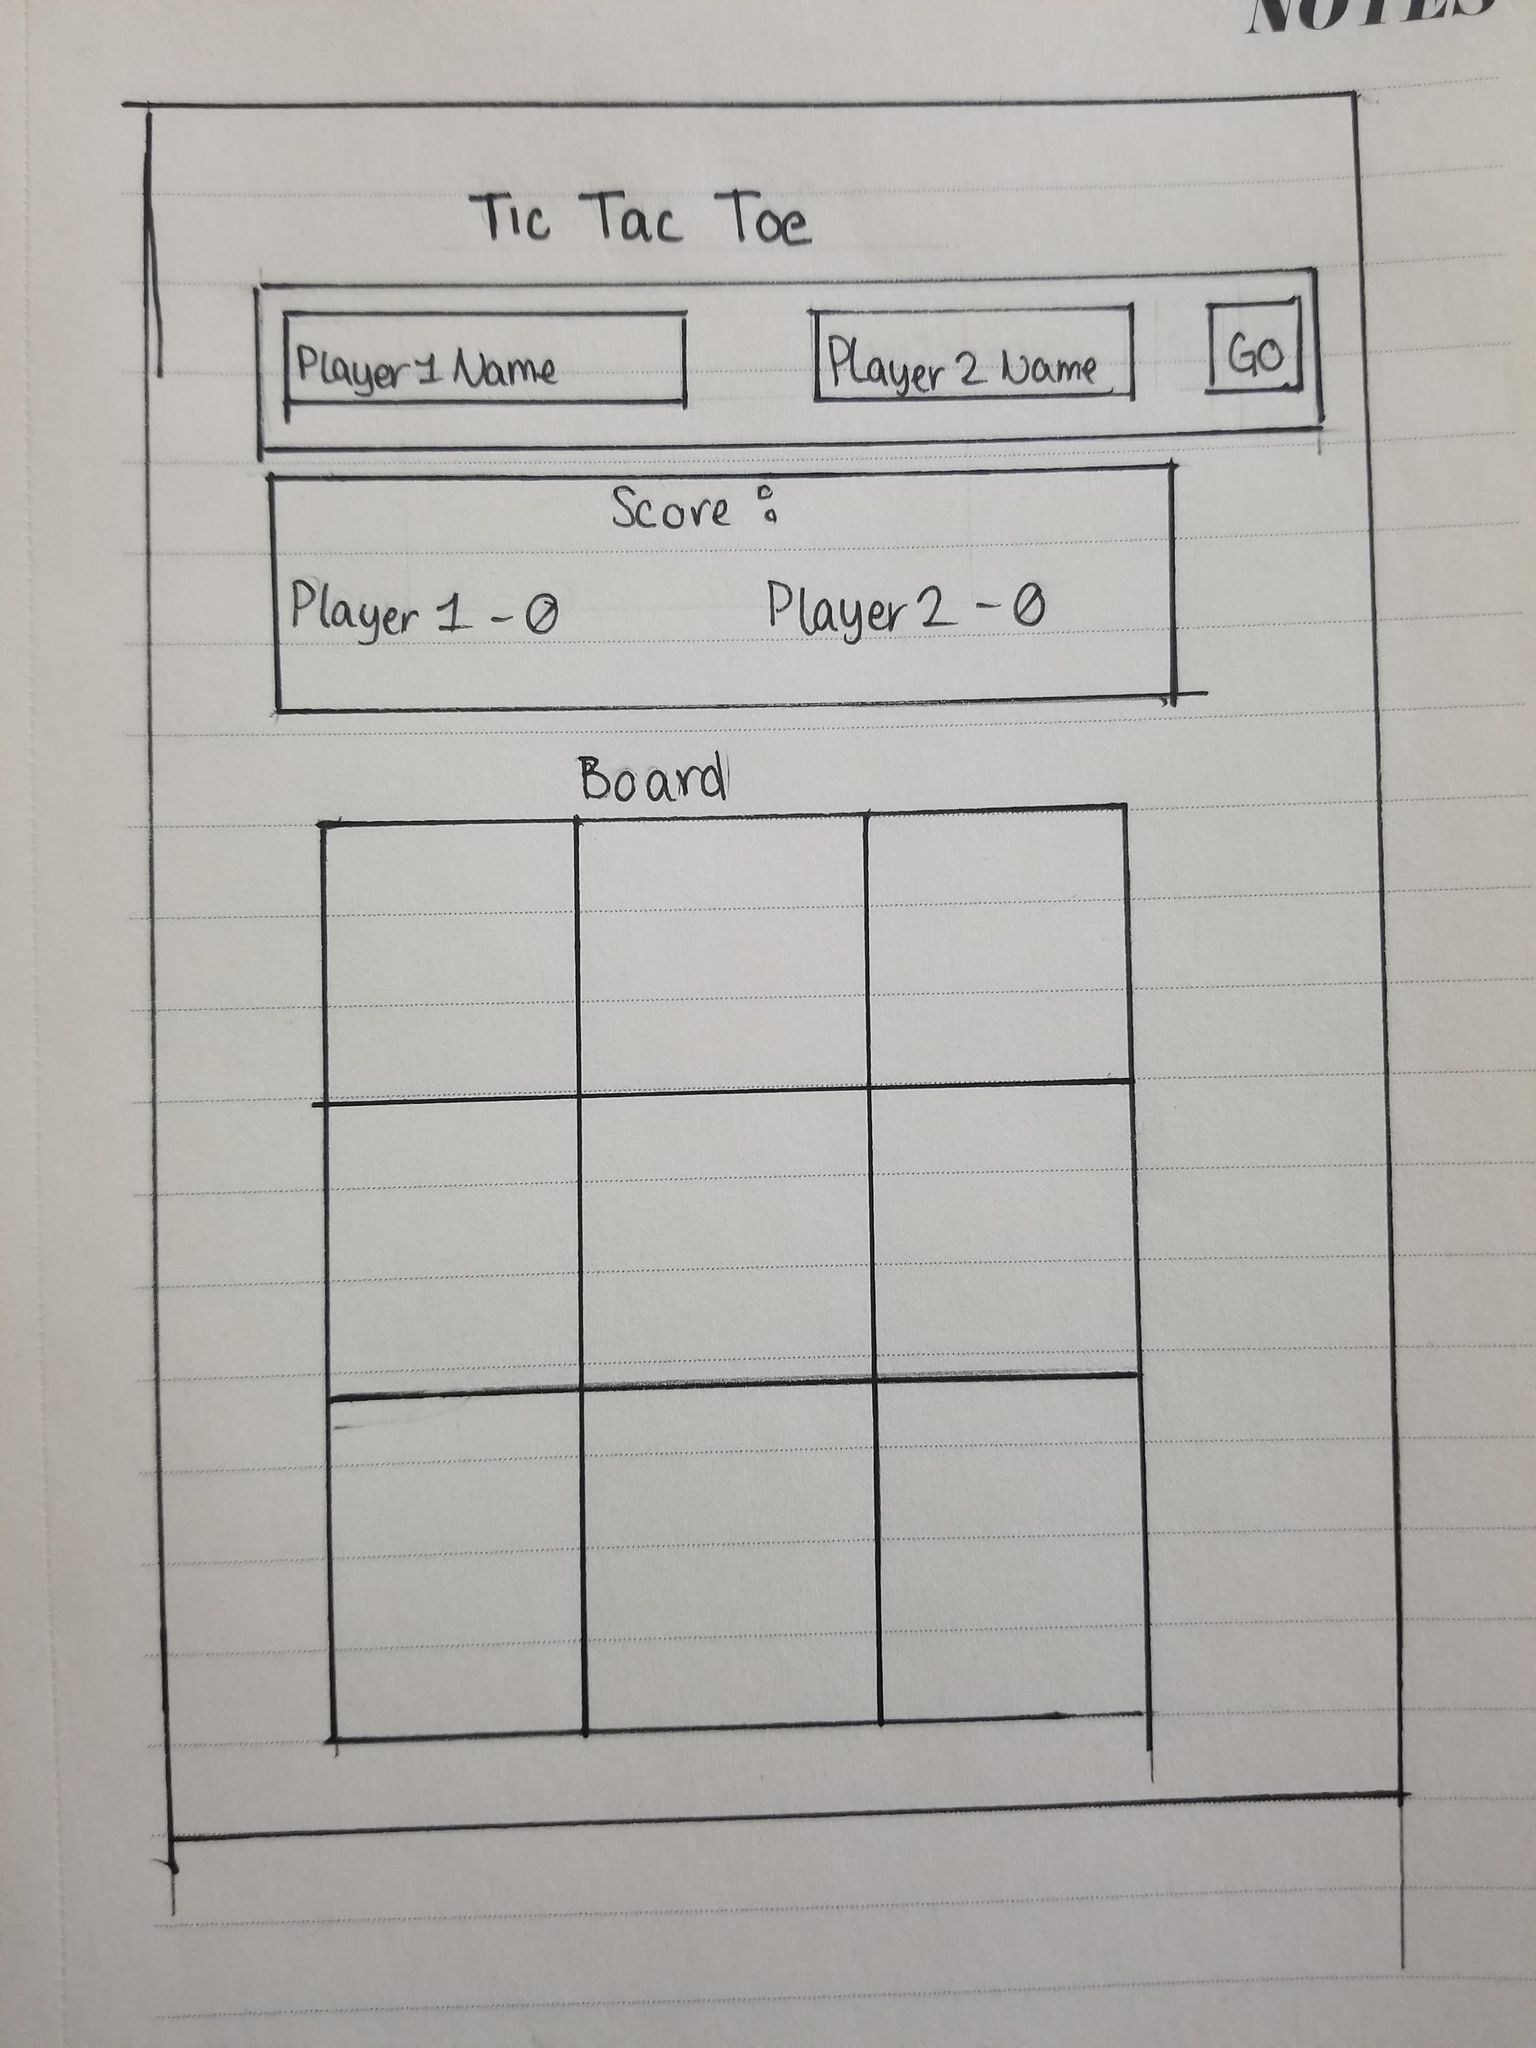 NOTES
Tic Tac Toe
Player 1 Name Player 2 Name GO
Score :
Player 1 - 0 Player 2 - 0
Board